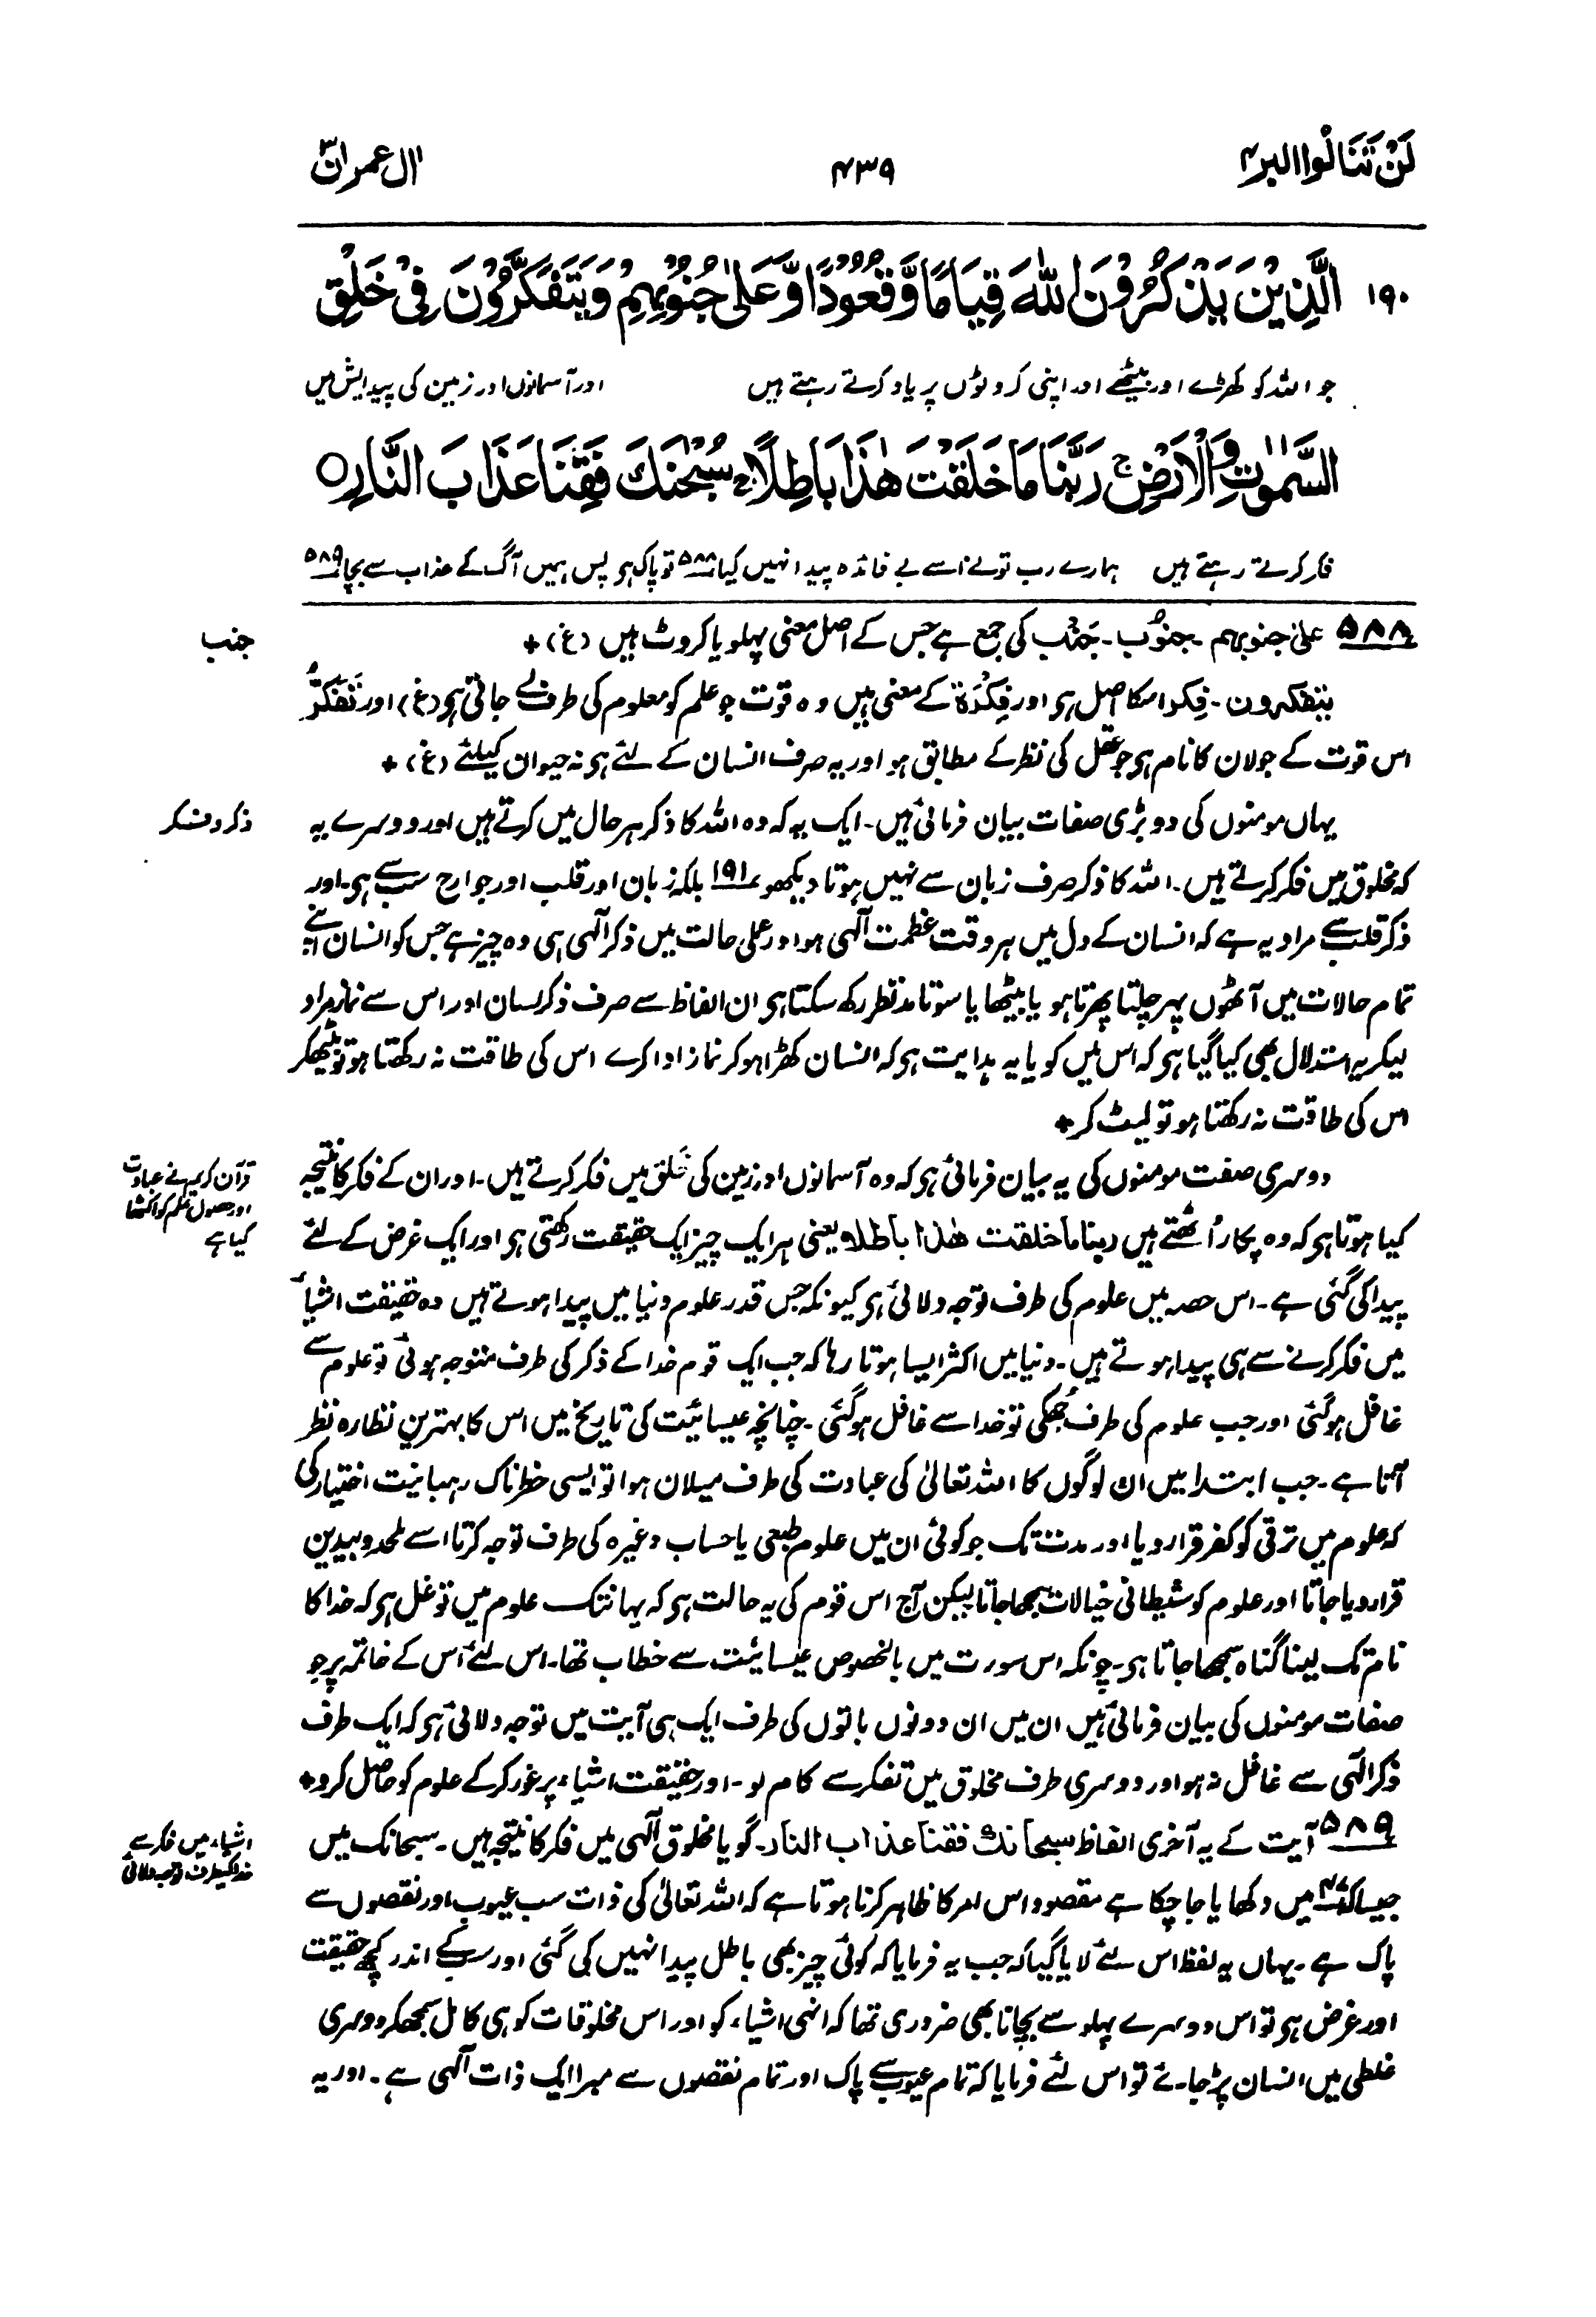 لَنْ تَنَالُوا البر۴
۴۳۹
اٰل عمران۳
۱۹۰ الَّذِيْنَ يَذْكُرُوْنَ اللّٰهَ قِيَامًا وَّقُعُوْدًا وَّعَلٰى جُنُوْبِهِمْ وَيَتَفَكَّرُوْنَ فِيْ خَلْقِ
جو اللہ کو کھڑے اور بیٹھے اور اپنی کروٹوں پر یاد کرتے رہتے ہیں اور آسمانوں اور زمین کی پیدایش میں
السَّمٰوٰتِ وَالْاَرْضِ ج رَبَّنَا مَا خَلَقْتَ هٰذَا بَاطِلًا ج سُبْحٰنَكَ فَقِنَا عَذَابَ النَّارِ ○
فکر کرتے رہتے ہیں ہمارے رب تونے اسے بے فائدہ پیدا نہیں کیا ۵۸۸ تو پاک ہی پس ہمیں آگ کے عذاب سے بچا ۵۸۹
۵۸۸ علیٰ جنوبہم ۔ جنوُب ۔ جَنْب کی جمع ہے جس کے اصل معنی پہلو یا کروٹ ہیں (غ)+
جنب
یتفکرون ۔ فِکر اسکا اصل ہی اور فِکْرَۃ کے معنی ہیں وہ قوت جو علم کو معلوم کی طرف لے جاتی ہی (غ) اور تَفَکُّر
اس قوت کے جولان کا نام ہی جو عقل کی نظر کے مطابق ہو اور یہ صرف انسان کے لئے ہی نہ حیوان کیلئے (غ)+
یہاں مومنوں کی دو بڑی صفات بیان فرمائی ہیں ۔ ایک یہ کہ وہ اللہ کا ذکر ہر حال میں کرتے ہیں اور دوسرے یہ
ذکر و فکر
کہ مخلوق میں فکر کرتے ہیں ۔ اللہ کا ذکر صرف زبان سے نہیں ہوتا دیکھو ۱۹۱ بلکہ زبان اور قلب اور جوارح سب سے ہی ۔ اور
ذکر قلب سے مراد یہ ہے کہ انسان کے دل میں ہر وقت عظمت الٰہی ہو اور عملی حالت میں ذکر الٰہی ہی وہ چیز ہے جس کو انسان اپنے
تمام حالات میں آٹھوں پہر چلتا پھرتا ہو یا بیٹھا یا سوتا مد نظر رکھ سکتا ہی ان الفاظ سے صرف ذکر لسان اور اس سے نماز مراد
لیکر یہ استدلال بھی کیا گیا ہی کہ اس میں گویا یہ ہدایت ہی کہ انسان کھڑا ہو کر نماز ادا کرے اس کی طاقت نہ رکھتا ہو تو بیٹھکر
اس کی طاقت نہ رکھتا ہو تو لیٹ کر+
دوسری صفت مومنوں کی یہ بیان فرمائی ہی کہ وہ آسمانوں اور زمین کی خَلق میں فکر کرتے ہیں ۔ اور ان کے فکر کا نتیجہ
قرآن کریم نے عبادت
اور حصول علم کو اکٹھا
کیا ہے
کیا ہوتا ہی کہ وہ پکار اُٹھتے ہیں ربنا ما خلقت ھذا باطلا یعنی ہر ایک چیز ایک حقیقت رکھتی ہی اور ایک غرض کے لئے
پیدا کی گئی ہے ۔ اس حصہ میں علوم کی طرف توجہ دلائی ہی کیونکہ جس قدر علوم دنیا میں پیدا ہوتے ہیں وہ حقیقت اشیاء
میں فکر کرنے سے ہی پیدا ہوتے ہیں ۔ دنیا میں اکثر ایسا ہوتا رہا کہ جب ایک قوم خدا کے ذکر کی طرف متوجہ ہوئی تو علوم سے
غافل ہو گئی اور جب علوم کی طرف جُھکی تو خدا سے غافل ہو گئی ۔ چنانچہ عیسائیت کی تاریخ میں اس کا بہترین نظارہ نظر
آتا ہے ۔ جب ابتدا میں ان لوگوں کا اللہ تعالیٰ کی عبادت کی طرف میلان ہوا تو ایسی خطرناک رہبانیت اختیار کی
کہ علوم میں ترقی کو کفر قرار دیا اور مدت تک جو کوئی ان میں علوم طبعی یا حساب وغیرہ کی طرف توجہ کرتا اسے ملحد و بیدین
قرار دیا جاتا اور علوم کو شیطانی خیالات سمجھا جاتا لیکن آج اس قوم کی یہ حالت ہی کہ یہانتک علوم میں توغل ہی کہ خدا کا
نام تک لینا گناہ سمجھا جاتا ہی ۔ چونکہ اس سورت میں بالخصوص عیسائیت سے خطاب تھا ۔ اس لئے اس کے خاتمہ پر جو
صفات مومنوں کی بیان فرمائی ہیں ان میں ان دونوں باتوں کی طرف ایک ہی آیت میں توجہ دلائی ہی کہ ایک طرف
ذکر الٰہی سے غافل نہ ہو اور دوسری طرف مخلوق میں تفکر سے کام لو ۔ اور حقیقت اشیاء پر غور کر کے علوم کو حاصل کرو+
۵۸۹ آیت کے یہ آخری الفاظ سبحانک فقنا عذاب النار ۔ گویا مخلوق الٰہی میں فکر کا نتیجہ ہیں ۔ سبحانک میں
اشیاء میں فکر سے
خدا کیطرف توجہ دلائی
جیسا کہ میں دکھایا جا چکا ہے مقصود اس امر کا ظاہر کرنا ہوتا ہے کہ اللہ تعالیٰ کی ذات سب عیوب اور نقصوں سے
پاک ہے ۔ یہاں یہ لفظ اس لئے لایا گیا کہ جب یہ فرمایا کہ کوئی چیز بھی باطل پیدا نہیں کی گئی اور سب کے اندر کچھ حقیقت
اور غرض ہی تو اس دوسرے پہلو سے بچانا بھی ضروری تھا کہ انہی اشیاء کو اور اس مخلوقات کو ہی کامل سمجھکر دوسری
غلطی میں انسان پڑ جائے تو اس لئے فرمایا کہ تمام عیوب سے پاک اور تمام نقصوں سے مبرا ایک ذات الٰہی ہے ۔ اور یہ